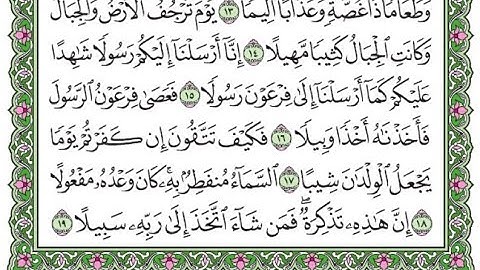 وَطَعَامًا ذَا غُصَّةٍ وَعَذَابًا أَلِيمًا ١٣ يَوْمَ تَرْجُفُ ٱلْأَرْضُ وَٱلْجِبَالُ
وَكَانَتِ ٱلْجِبَالُ كَثِيبًا مَّهِيلًا ١٤ إِنَّآ أَرْسَلْنَآ إِلَيْكُمْ رَسُولًا شَٰهِدًا
عَلَيْكُمْ كَمَآ أَرْسَلْنَآ إِلَىٰ فِرْعَوْنَ رَسُولًا ١٥ فَعَصَىٰ فِرْعَوْنُ ٱلرَّسُولَ
فَأَخَذْنَٰهُ أَخْذًا وَبِيلًا ١٦ فَكَيْفَ تَتَّقُونَ إِن كَفَرْتُمْ يَوْمًا
يَجْعَلُ ٱلْوِلْدَٰنَ شِيبًا ١٧ ٱلسَّمَآءُ مُنفَطِرٌۢ بِهِۦ ۚ كَانَ وَعْدُهُۥ مَفْعُولًا
١٨ إِنَّ هَٰذِهِۦ تَذْكِرَةٌ ۖ فَمَن شَآءَ ٱتَّخَذَ إِلَىٰ رَبِّهِۦ سَبِيلًا ١٩